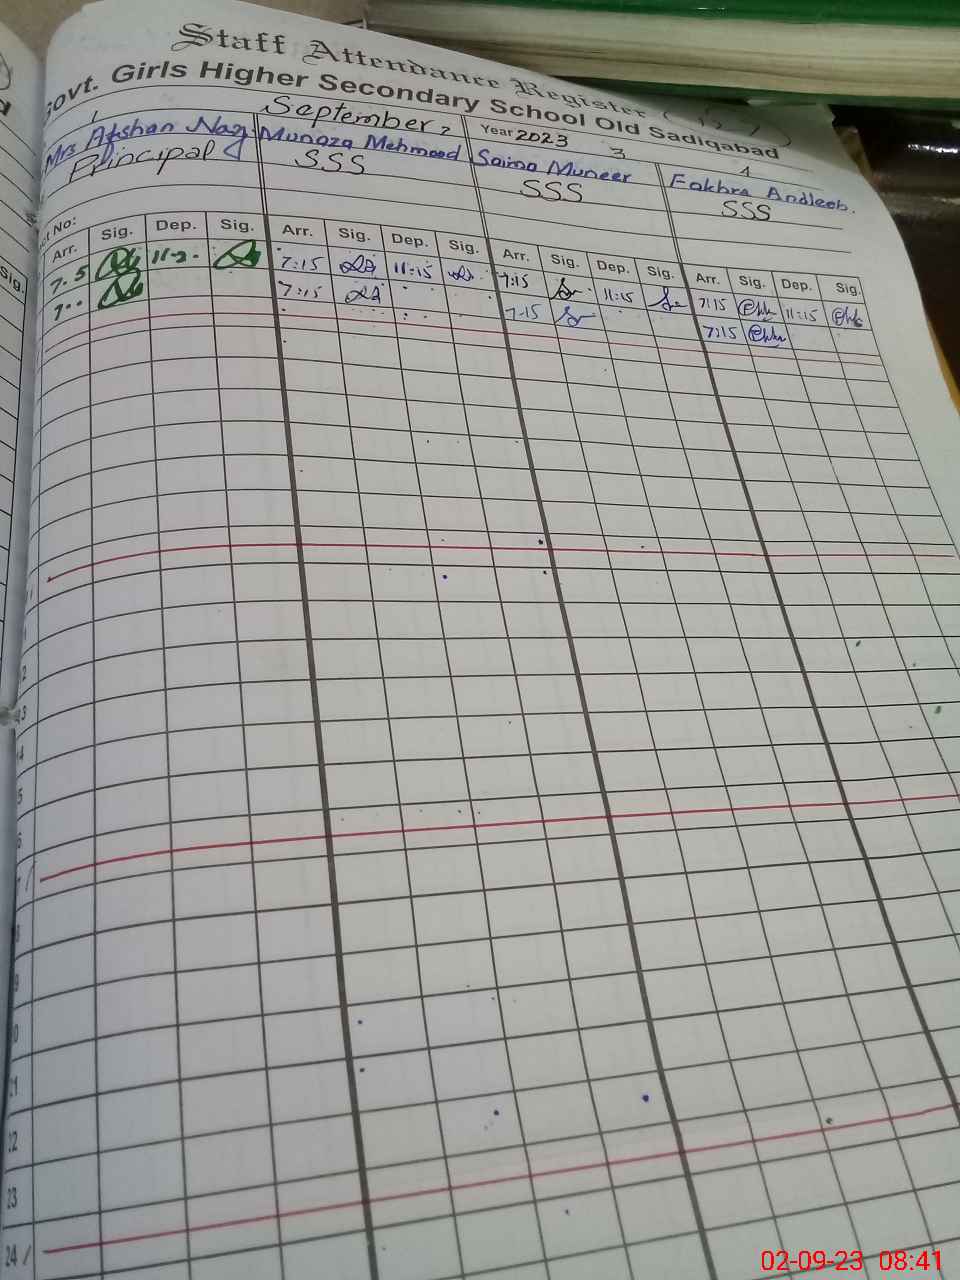 Staff Attendance Register
Govt. Girls Higher Secondary School Old Sadiqabad
September, Year 2023
1 3 4
Mrs Afshan Naz Munaza Mehmood Saima Muneer Fakhra Andleeb.
Principal SSS SSS SSS
No:
Arr. Sig. Dep. Sig. Arr. Sig. Dep. Sig. Arr. Sig. Dep. Sig. Arr. Sig. Dep. Sig.
7.5 7:15 11:15 7:15 11:15 7:15 11:15
7.. 7:15 7:15 7:15
Sig.
21
23
24
02-09-23 08:41